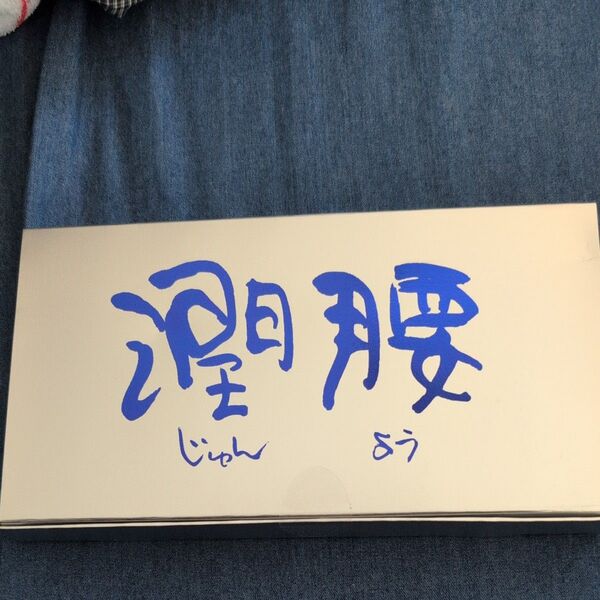 潤腰
じゅん よう